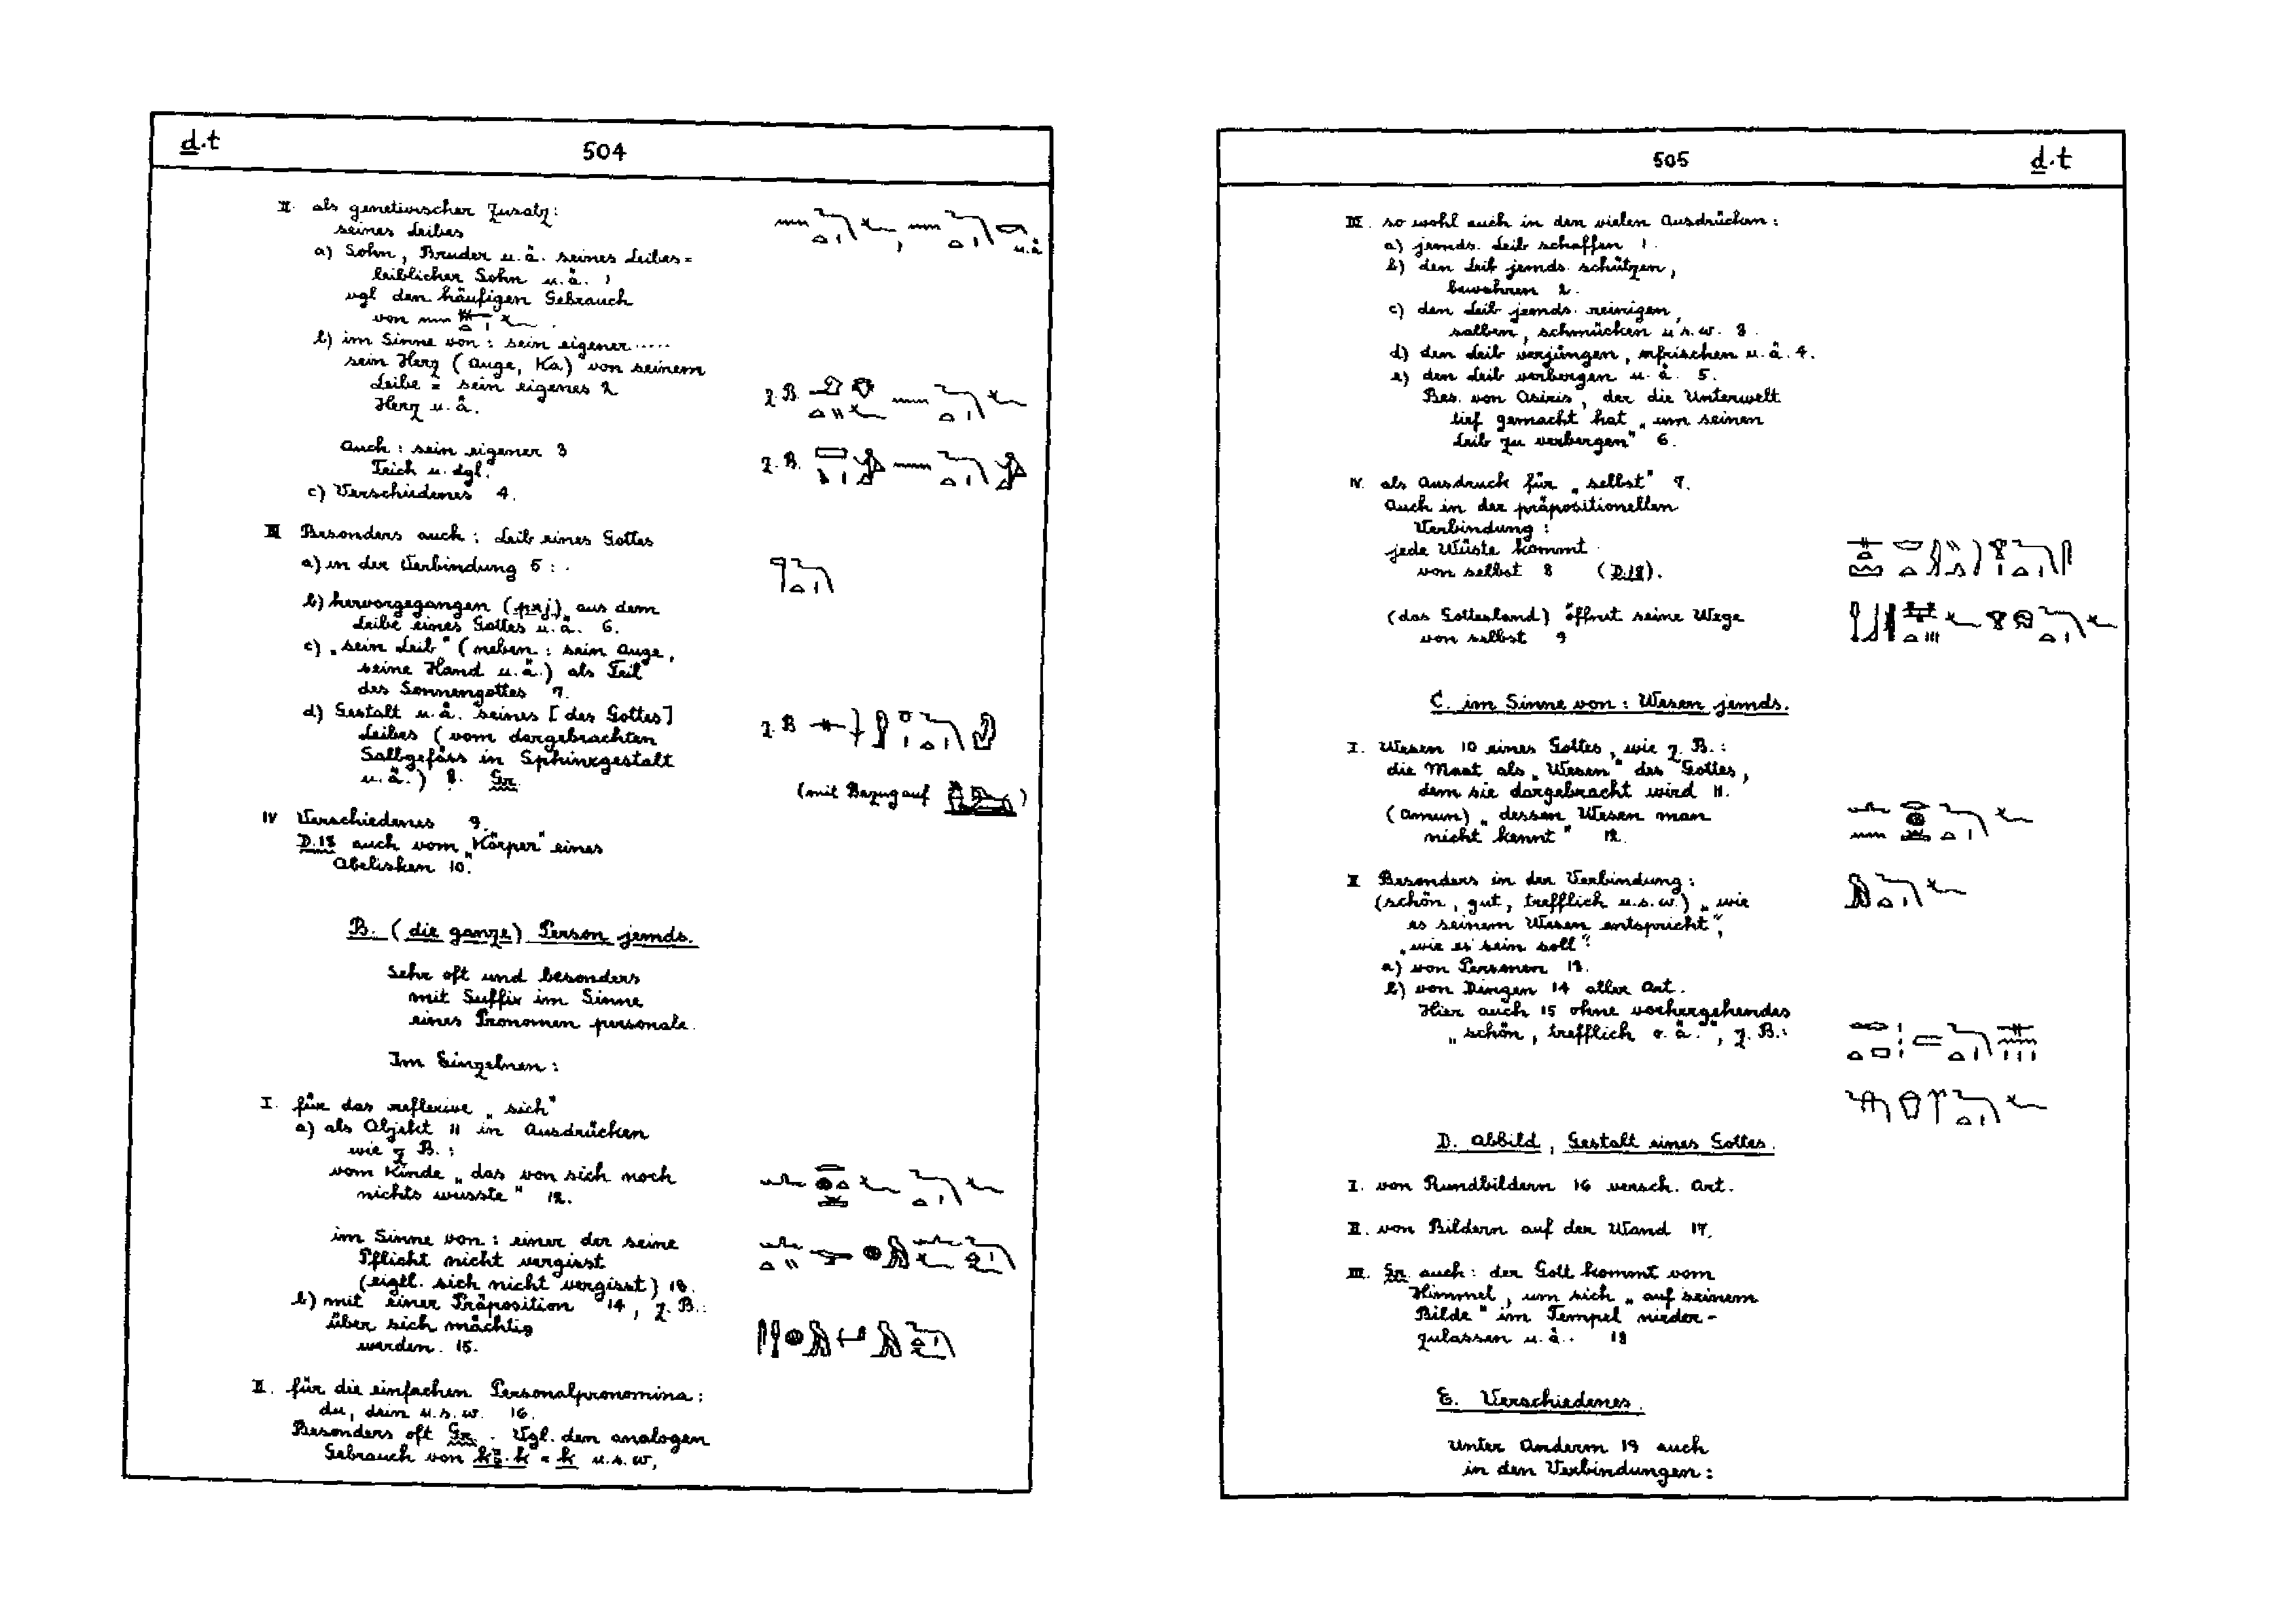 ḏ.t
504
II. als genetivischer Zusatz:
seines Leibes
a) Sohn, Bruder u. ä. seines Leibes =
leiblicher Sohn u. ä. 1
vgl den häufigen Gebrauch
von
b) im Sinne von: sein eigener .....
sein Herz (Auge, Ka) von seinem
Leibe = sein eigenes 2
Herz u. ä.
z. B.
Auch: sein eigener 3
Teich u. dgl.
z. B.
c) Verschiedenes 4.
III Besonders auch: Leib eines Gottes
a) in der Verbindung 5:
b) hervorgegangen (prj) aus dem
Leibe eines Gottes u. ä. 6.
c) „sein Leib" (neben: sein Auge,
seine Hand u. ä.) als Teil
des Sonnengottes 7.
d) Gestalt u. ä. seines [des Gottes]
Leibes (vom dargebrachten
Salbgefäss in Sphinxgestalt
u. ä.) 8. Gr.
z. B
(mit Bezug auf )
IV Verschiedenes 9.
D.18 auch vom „Körper" eines
Obelisken 10.
B. (die ganze) Person jemds.
Sehr oft und besonders
mit Suffix im Sinne
eines Pronomen personale.
Im Einzelnen:
I. für das reflexive „sich"
a) als Objekt 11 in Ausdrücken
wie z B.:
vom Kinde „das von sich noch
nichts wusste" 12.
im Sinne von: einer der seine
Pflicht nicht vergisst
(eigtl. sich nicht vergisst) 13.
b) mit einer Präposition 14, z. B.:
über sich mächtig
werden. 15.
II. für die einfachen Personalpronomina:
du, dein u. s. w. 16.
Besonders oft Gr. Vgl. den analogen
Gebrauch von kꜣ.k = k u. s. w.
505
ḏ.t
III. so wohl auch in den vielen Ausdrücken:
a) jemds. Leib schaffen 1.
b) den Leib jemds. schützen,
bewahren 2.
c) den Leib jemds. reinigen,
salben, schmücken u. s. w. 3.
d) den Leib verjüngen, erfrischen u. ä. 4.
e) den Leib verbergen u. ä. 5.
Bes. von Osiris, der die Unterwelt
tief gemacht hat „um seinen
Leib zu verbergen" 6.
IV. als Ausdruck für „selbst" 7.
Auch in der präpositionellen
Verbindung:
jede Wüste kommt
von selbst 8 (D.18).
(das Gottesland) öffnet seine Wege
von selbst 9
C. im Sinne von: Wesen jemds.
I. Wesen 10 eines Gottes, wie z. B.:
die Maat als „Wesen" des Gottes,
dem sie dargebracht wird 11.
(Amun) „dessen Wesen man
nicht kennt" 12.
II Besonders in der Verbindung:
(schön, gut, trefflich u. s. w.) „wie
es seinem Wesen entspricht",
„wie es sein soll":
a) von Personen 13.
b) von Dingen 14 aller Art.
Hier auch 15 ohne vorhergehendes
„schön, trefflich o. ä.", z. B.:
D. Abbild, Gestalt eines Gottes.
I. von Rundbildern 16 versch. Art.
II. von Bildern auf der Wand 17.
III. Gr. auch: der Gott kommt vom
Himmel, um sich „auf seinem
Bilde" im Tempel nieder-
zulassen u. ä. 18
E. Verschiedenes.
Unter Anderm 19 auch
in den Verbindungen: